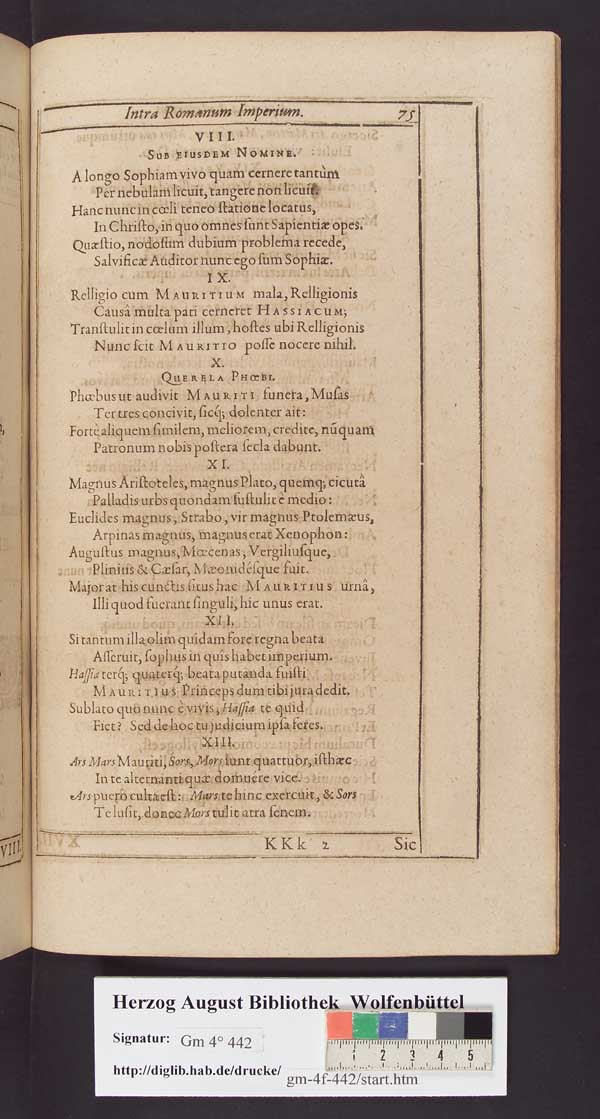 Intra Romanum Imperium. 75
VIII.
SUB EJUSDEM NOMINE.
A longo Sophiam vivo quam cernere tantùm
Per nebulam licuit, tangere non licuit.
Hanc nunc in cœli teneo ſtatione locatus,
In Chriſto, in quo omnes ſunt Sapientiæ opes.
Quæſtio, nodoſum dubium problema recede,
Salvificæ Auditor nunc ego ſum Sophiæ.
IX.
Relligio cum MAURITIUM mala, Relligionis
Causâ multa pati cerneret HASSIACUM;
Tranſtulit in cœlum illum, hoſtes ubi Relligionis
Nunc ſcit MAURITIO poſſe nocere nihil.
X.
QUERELA PHŒBI.
Phœbus ut audivit MAURITI funera, Muſas
Ter tres concivit, ſicq́; dolenter ait:
Fortè aliquem ſimilem, meliorem, credite, nũquam
Patronum nobis poſtera ſecla dabunt.
XI.
Magnus Ariſtoteles, magnus Plato, quemq; cicutâ
Palladis urbs quondam ſuſtulit è medio:
Euclides magnus, Strabo, vir magnus Ptolemæus,
Arpinas magnus, magnus erat Xenophon:
Auguſtus magnus, Mœcenas, Vergiliuſque,
Plinius & Cæſar, Mæonidéſque fuit.
Major at his cunctis ſitus hac MAURITIUS urnâ,
Illi quod fuerant ſinguli, hic unus erat.
XII.
Si tantum illa olim quidam fore regna beata
Aſſeruit, ſophus in quîs habet imperium.
Haſſia terq́; quaterq́; beata putanda fuiſti
MAURITIUS Princeps dum tibi jura dedit.
Sublato quo nunc è vivis, Haſſia te quid
Fiet? Sed de hoc tu judicium ipſa feres.
XIII.
Ars Mars Mauriti, Sors, Mors ſunt quattuor, iſthæc
In te alternanti quæ domuere vice.
Ars puero culta eſt: Mars te hinc exercuit, & Sors
Te luſit, donec Mors tulit atra ſenem.
KKk 2 Sic
VIII.
Herzog August Bibliothek Wolfenbüttel
Signatur: Gm 4° 442
http://diglib.hab.de/drucke/ gm-4f-442/start.htm
1 2 3 4 5